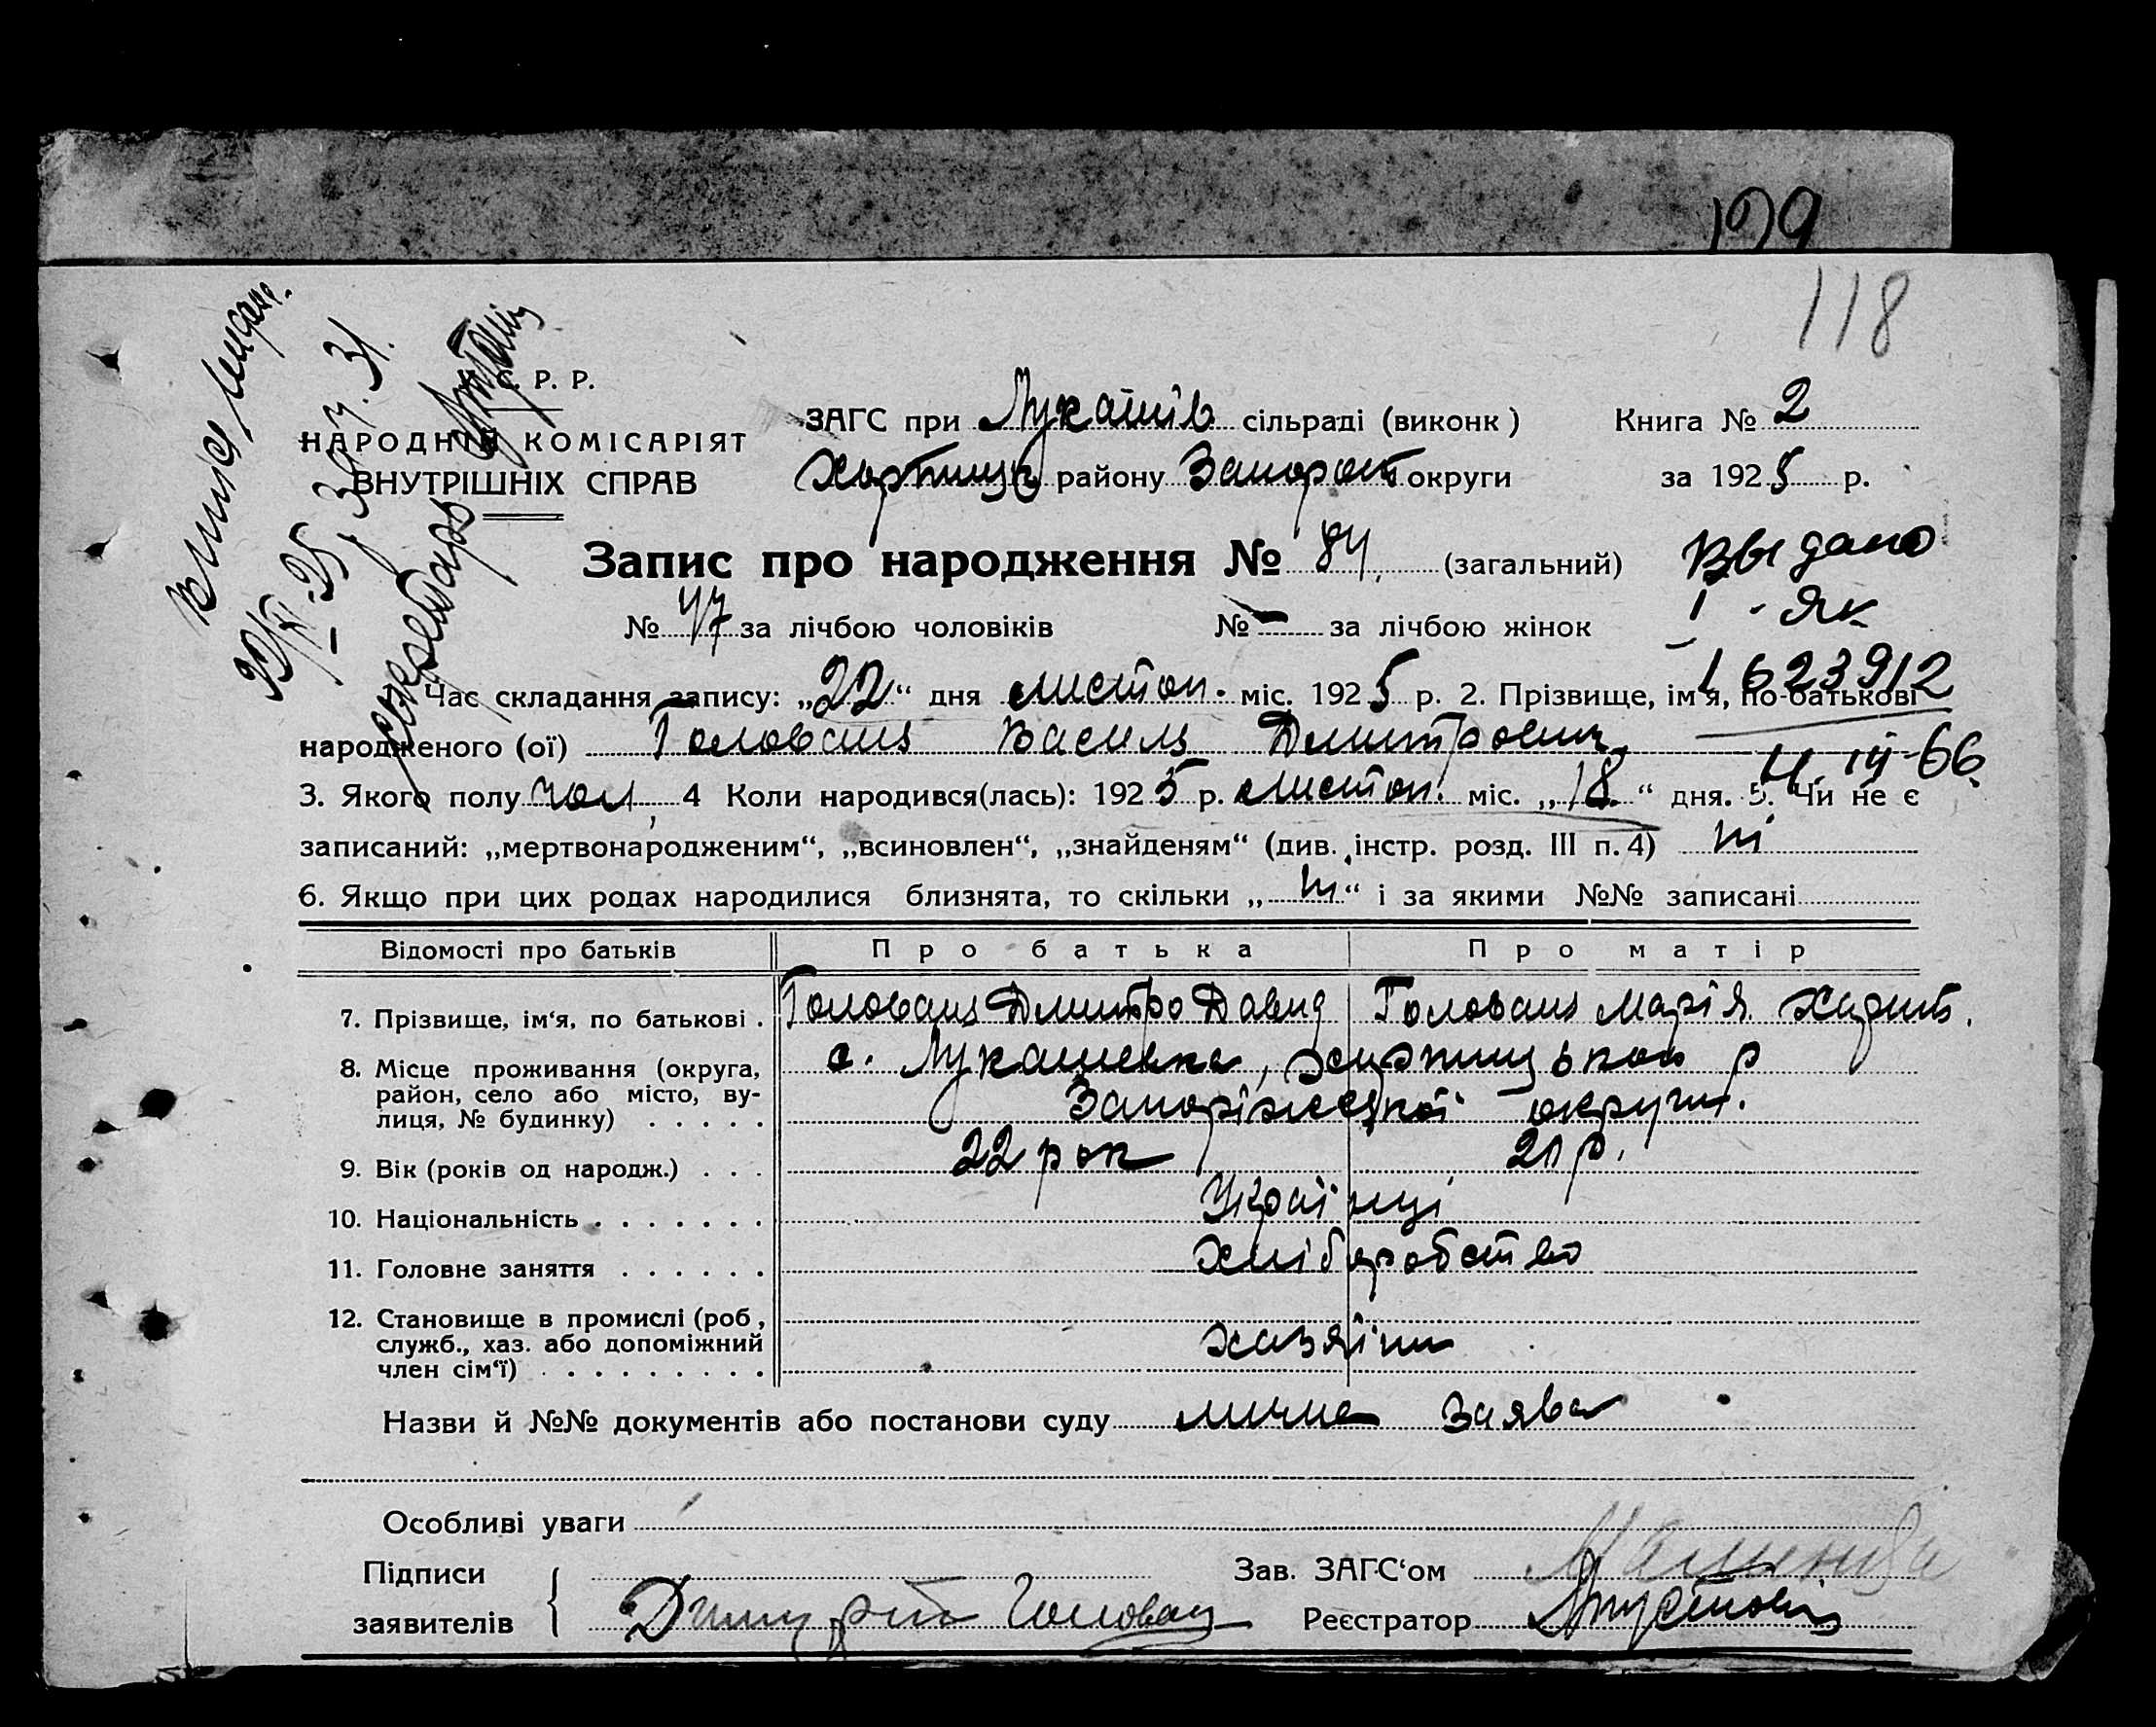 199
118
С. Р. Р.
НАРОДНІЙ КОМІСАРІЯТ
ВНУТРІШНІХ СПРАВ
ЗАГС при Лукашів сільраді (виконк) Книга № 2
району Запорож округи за 1925 р.
Запис про народження № 84 (загальний)
Выдано
№ 47 за лічбою чоловіків № — за лічбою жінок
1 - ЯК
1623912
Час складання запису: „22“ дня листоп. міс. 1925 р. 2. Прізвище, ім'я, по-батькові
народженого (ої) Головаш Василь Дмитрович
4. III-66
3. Якого полу чол, 4 Коли народився(лась): 1925 р. листоп. міс. „18“ дня. 5. Чи не є
записаний: „мертвонародженим“, „всиновлен“, „знайденям“ (див. інстр. розд. III п. 4) ні
6. Якщо при цих родах народилися близнята, то скільки „ні“ і за якими №№ записані
Відомості про батьків Про батька Про матір
7. Прізвище, ім'я, по батькові . Головаш Дмитро Давид Головаш Марія Харит.
8. Місце проживання (округа, район, село або місто, вулиця, № будинку) . . . . . с. Лукашевка, р
Запоріжської округи.
9. Вік (років од народж.) . . . 22 рок 21 р.
10. Національність . . . . . . . Українці
11. Головне заняття . . . . . . хліборобство
12. Становище в промислі (роб, служб., хаз. або допоміжний член сім'ї) . . . . . . . . . хазяїни
Назви й №№ документів або постанови суду лична заява
Особливі уваги
Підписи
заявителів
Дмитрий Головаш
Зав. ЗАГС'ом
Реєстратор
секретарь